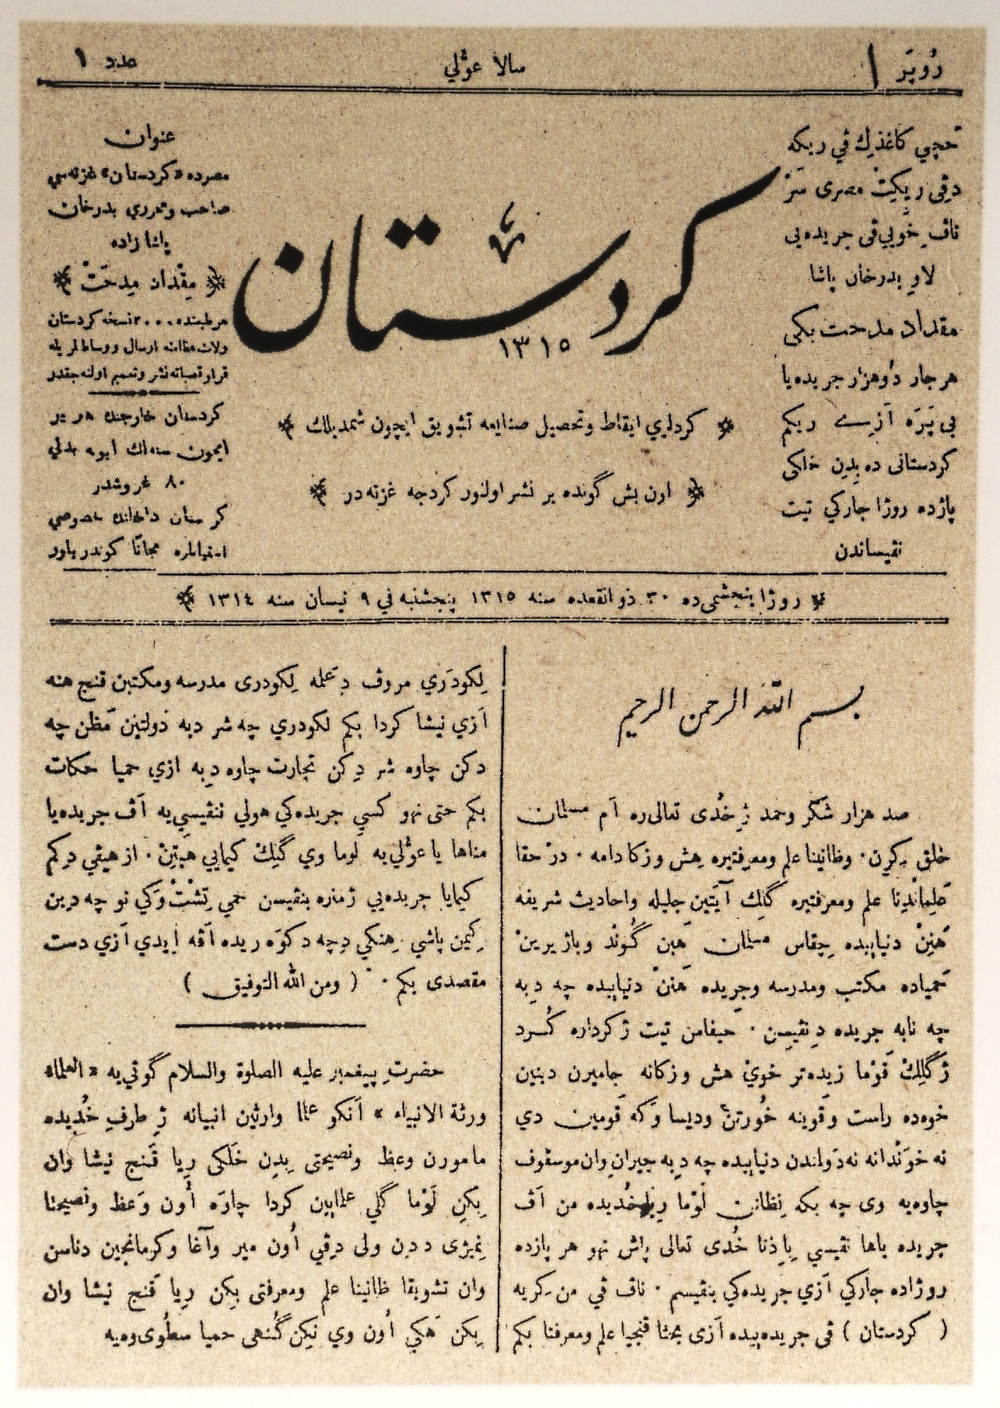 رُوپَر ١
سالا عوّلي
عدد ١
حچي كاغذك في ريكه
دفى ريكت مصرى سر
ناف خويى فى جريده يى
لاو بدرخان پاشا
مقداد مدحت بكى
هر جار دُوهزار جريده يا
بى پَرَه اَزى ريكم
كردستانى ده بِدِن خلكى
پازده روژا جاركي تيت
نفيساندن
عنوان
مصرده «كردستان» غزته سي
صاحب ومحررى بدرخان
پاشا زاده
مقداد مدحت
هر طبعنده ٢٠٠٠ نسخه كردستان
كردستان خارجنه هر ير
ايچون سنه لك ابونه بدلي
٨٠ غروشدر
مجانًا كوندريلور
كردستان
١٣١٥
كردلري ايقاظ وتحصيل صنايعه تشويق ايچون شمديلك
اون بش كونده بر نشر اولنور كردجه غزته در
روژا پنجشمى ده ٣٠ ذو القعده سنه ١٣١٥ پنجشنبه في ٩ نيسان سنه ١٣١٤
بسم الله الرحمن الرحيم
صد هزار شكر وحمد ژ خُدى تعالى ره اَم مسلمان
خلق كرن. وظانينا علم ومعرفتيره هِش وزكا دامه. در حقا
علم ومعرفتيره گلك آيتين جليله واحاديث شريفه
هَنِن دنيايىده چقاس مسلمان هَين گُوند وباژيرين
حمياده مكتب ومدرسه وجريده هنن دنيايىده چه دِبه
چه نابه جريده دنفيسن. حيفامن تيت ژ كرداره كُرد
ژ گلك قوما زيده تر خوى هش وزكانه جاميرن دينين
خوه ده راست وقوينه خُورتن وديسا وَكه قَومين دي
نه خوندانه نه دَولندن دنيايىده چه دبه جيران وان موسقوف
چاوه يه وى چه بكه نظانن. لَوما رِيا خُديده من اَف
جريده ياها نفيسي باذنا خُدى تعالى پاش نهو هر پازده
روژاده جاركي اَزى جريده كي بنفيسم. ناف في من كريه
( كردستان ) في جريده ييده اَزى بحثا قنجيا علم ومعرفتا بكم
لكودَري مروف دعمله لِكودرى مدرسه ومكتبن قنج هنه
اَزي نيشا كردا بكم لكودري چه شر دبه دولتين مَظن چه
دكن چاوه شر دكن تجارت چاوه دبه ازي حميا حكات
بكم حتى نهو كسي جريده كي هولي ننفيسي يه اَف جريده يا
مناها يا عوّلي يه لوما وي گلك كيمايي هبتِن. از هيفي دركم
كيمايا جريده يي ژمنره بنفيسن حمي تشت وَكي نو چه دِبن
كيمن پاشي. هنكي دچه دكوَه ريده اَفه ايدي اَزي دست
مقصدى بكم. ( ومن الله التوفيق )
حضرت پيغمبر عليه الصلوة والسلام گوتي يه « العلماء
ورثة الانبياء » اَنكو علما وارثين انبيانه ژ طرف خُديده
مامورن وعظ ونصيحتى بِدِن خلكى رِيا قنج نيشا وان
بِكن لَوما گلي علمايين كردا چاوَه اُون وَعظ ونصيحتا
نِميژى ددن ولى درقي اُون مير وآغا وكرمانجين دناسن
وان تشويقا ظانينا علم ومعرفتى بِكن رِيا قنج نيشا وان
بِكن هَكي اُون وي نكن گُنهى حميا ستُوى وه يه